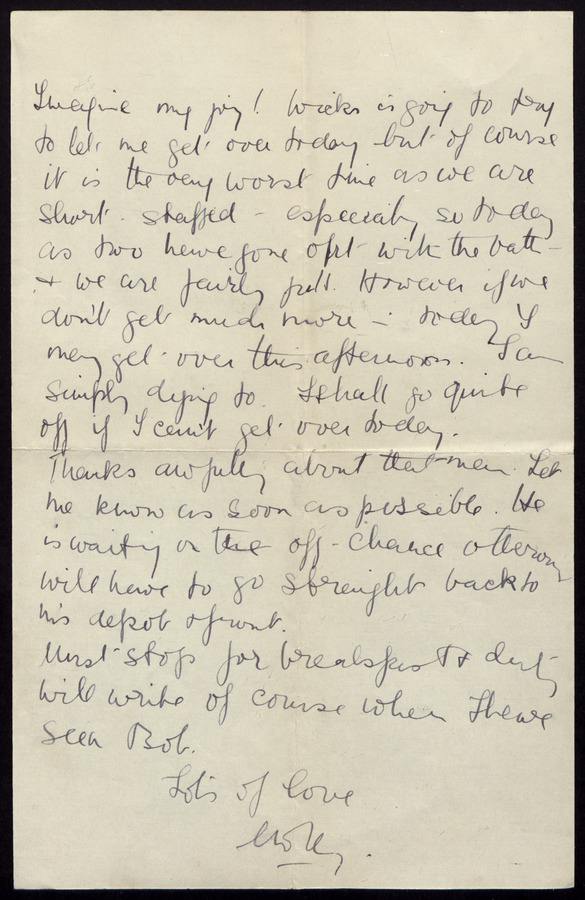 Imagine my joy! Wicks is going to try
to let me get over today - but of course
it is the very worst time as we are
short-staffed - especially so today
as two have gone off with the batt-
& we are fairly full. However if we
don't get much more - today I
may get over this afternoon. I am
simply dying to. I shall go quite
off if I can't get over today.
Thanks awfully about that man. Let
me know as soon as possible. He
is waiting on the off-chance otherwise
will have to go straight back to
his depot
Must stop for breakfast & duty
will write of course when I have
seen Bob.
Lots of love
Molly.